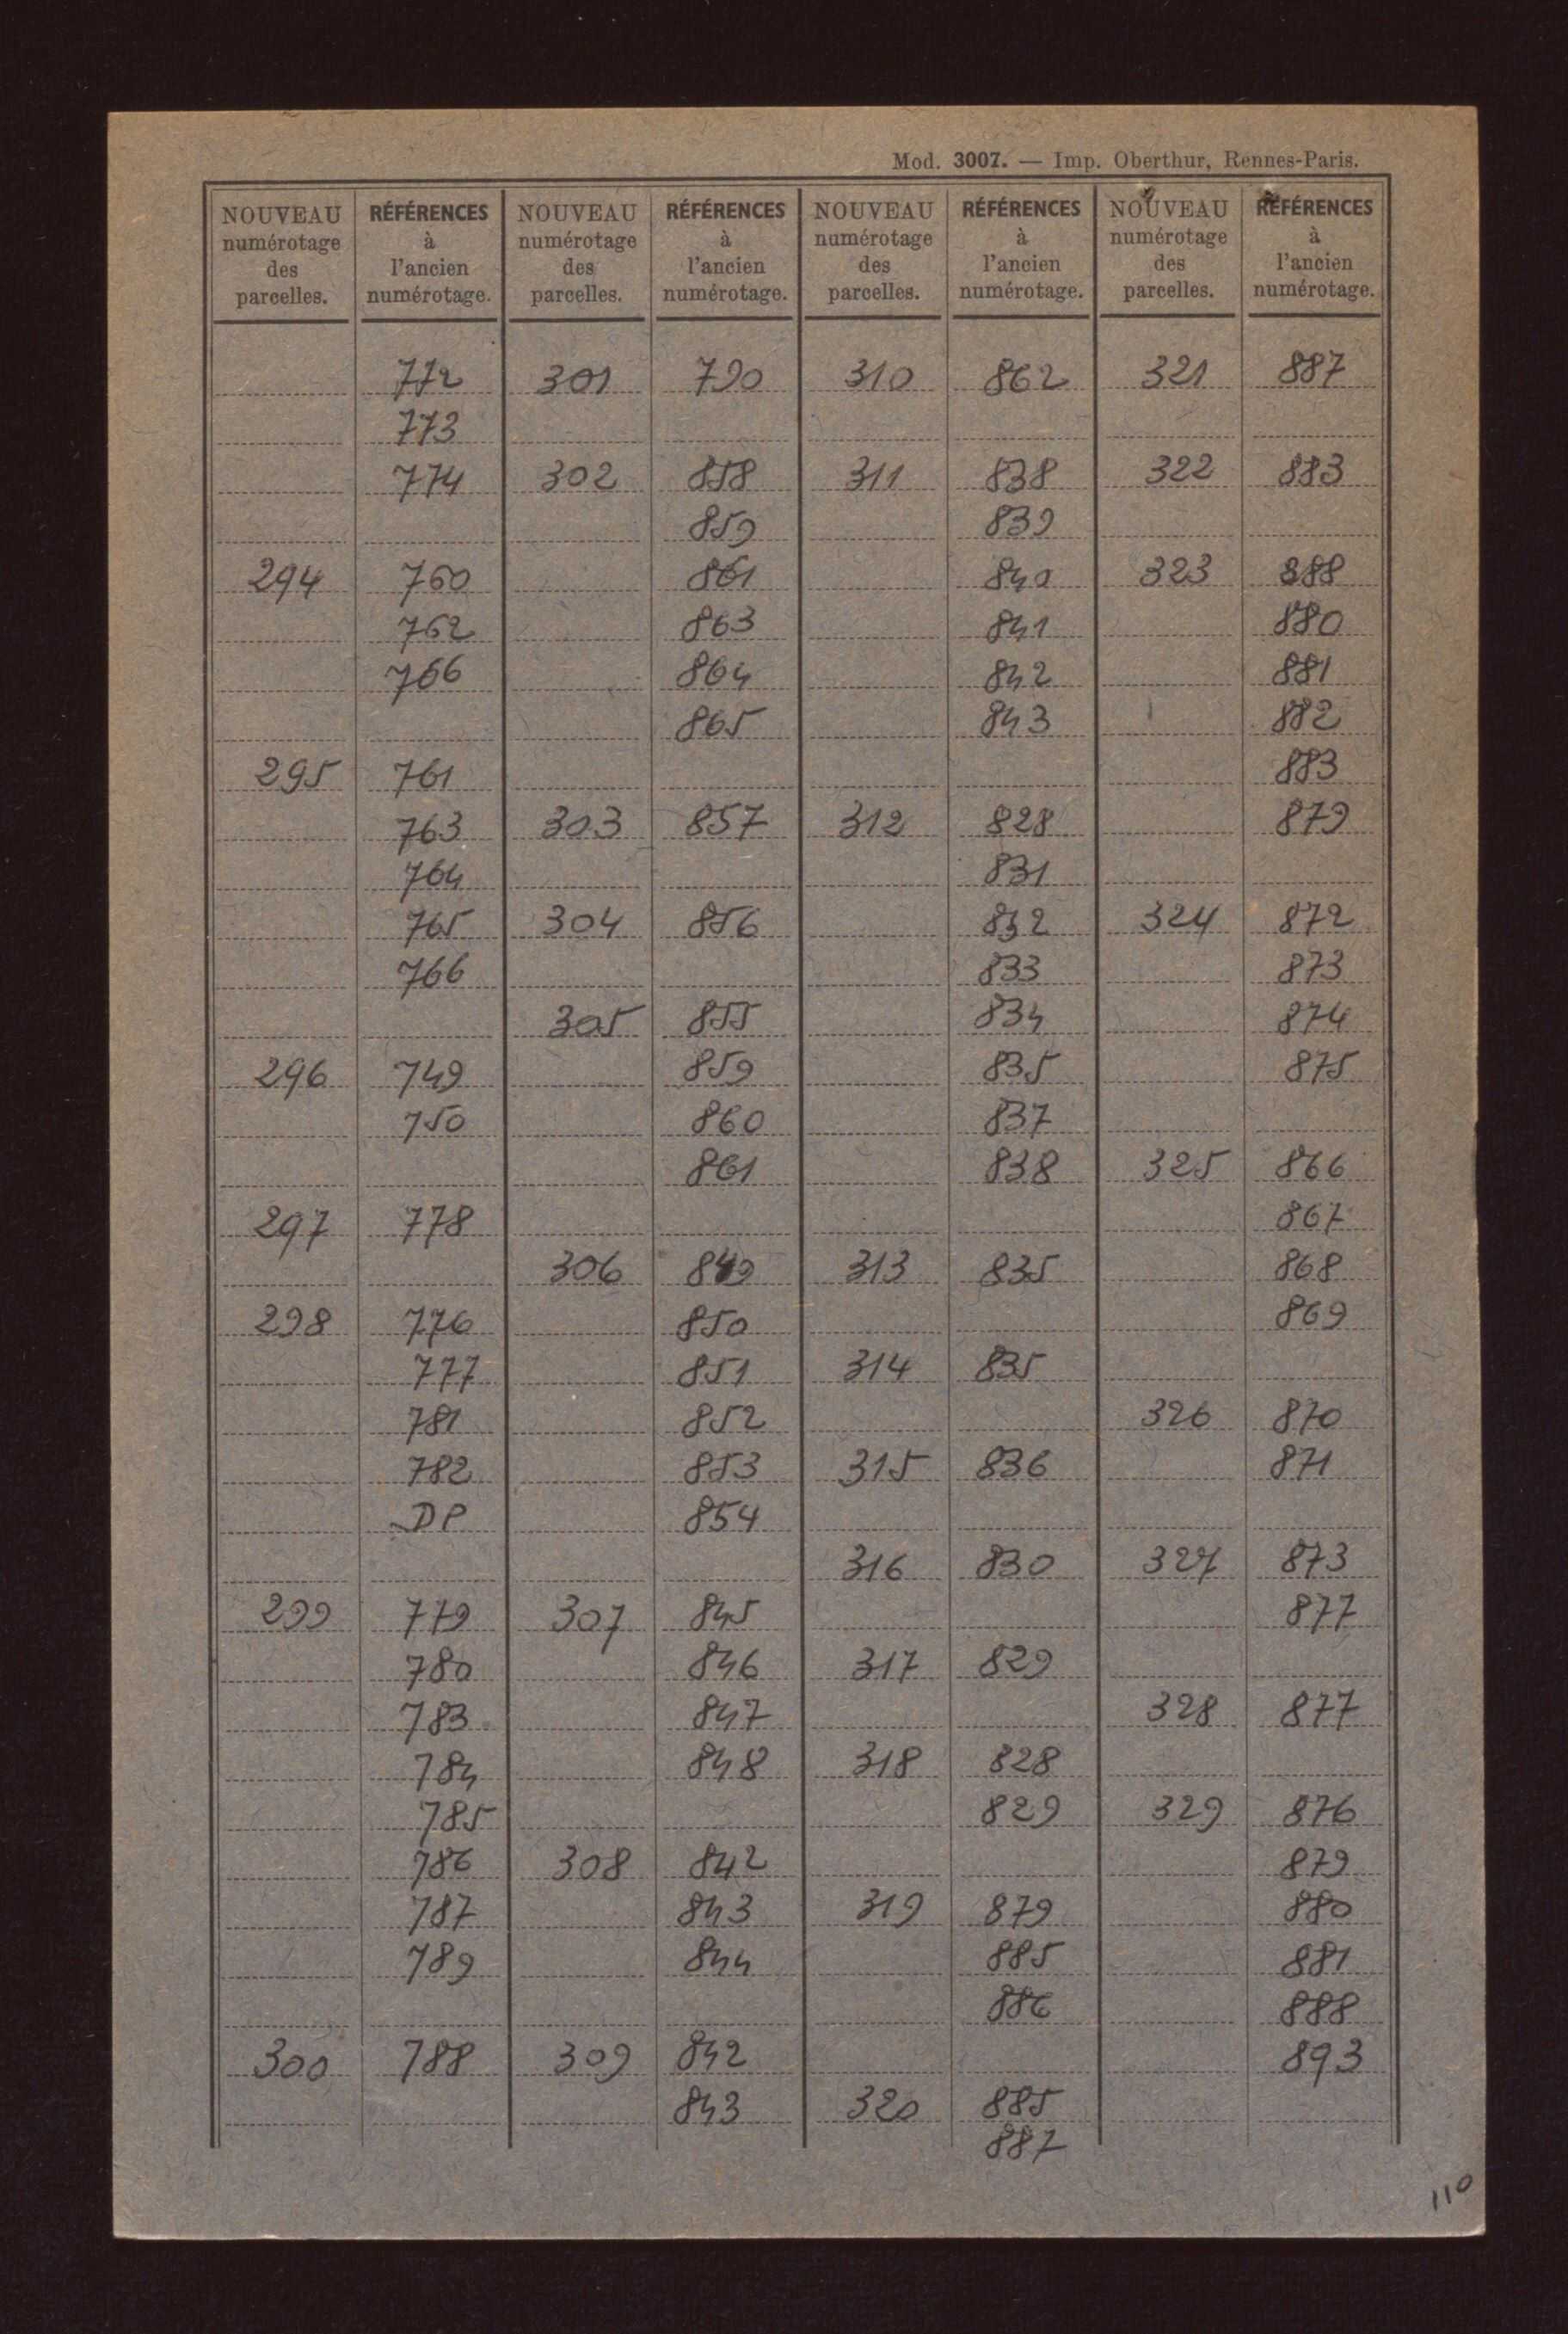 Mod. 3007. — Imp. Oberthur, Rennes-Paris.
NOUVEAU RÉFÉRENCES NOUVEAU RÉFÉRENCES NOUVEAU RÉFÉRENCES NOUVEAU RÉFÉRENCES
numérotage à numérotage à numérotage à numérotage à
des l'ancien des l'ancien des l'ancien des l'ancien
parcelles. numérotage. parcelles. numérotage. parcelles. numérotage. parcelles. numérotage.
772 301 790 310 862 321 887
773
774 302 858 311 838 322 883
859 839
294 760 861 840 323 888
762 863 841 880
766 864 842 881
865 843 882
295 761 883
763 303 857 312 828 879
764 831
765 304 856 832 324 872
766 833 873
305 855 834 874
296 749 859 835 875
750 860 837
861 838 325 866
297 778 867
306 849 313 835 868
298 776 850 869
777 851 314 835
781 852 326 870
782 853 315 836 871
DP 854
316 830 327 873
299 779 307 845 877
780 846 317 829
783 847 328 877
784 848 318 828
785 829 329 876
786 308 842 879
787 843 319 879 880
789 844 885 881
886 888
300 788 309 842 893
843 320 885
887
110